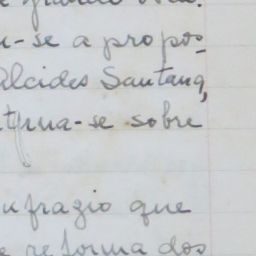 n-se a propos
Alcides Santana,
-se sobre
ufragio que
e reforma dos